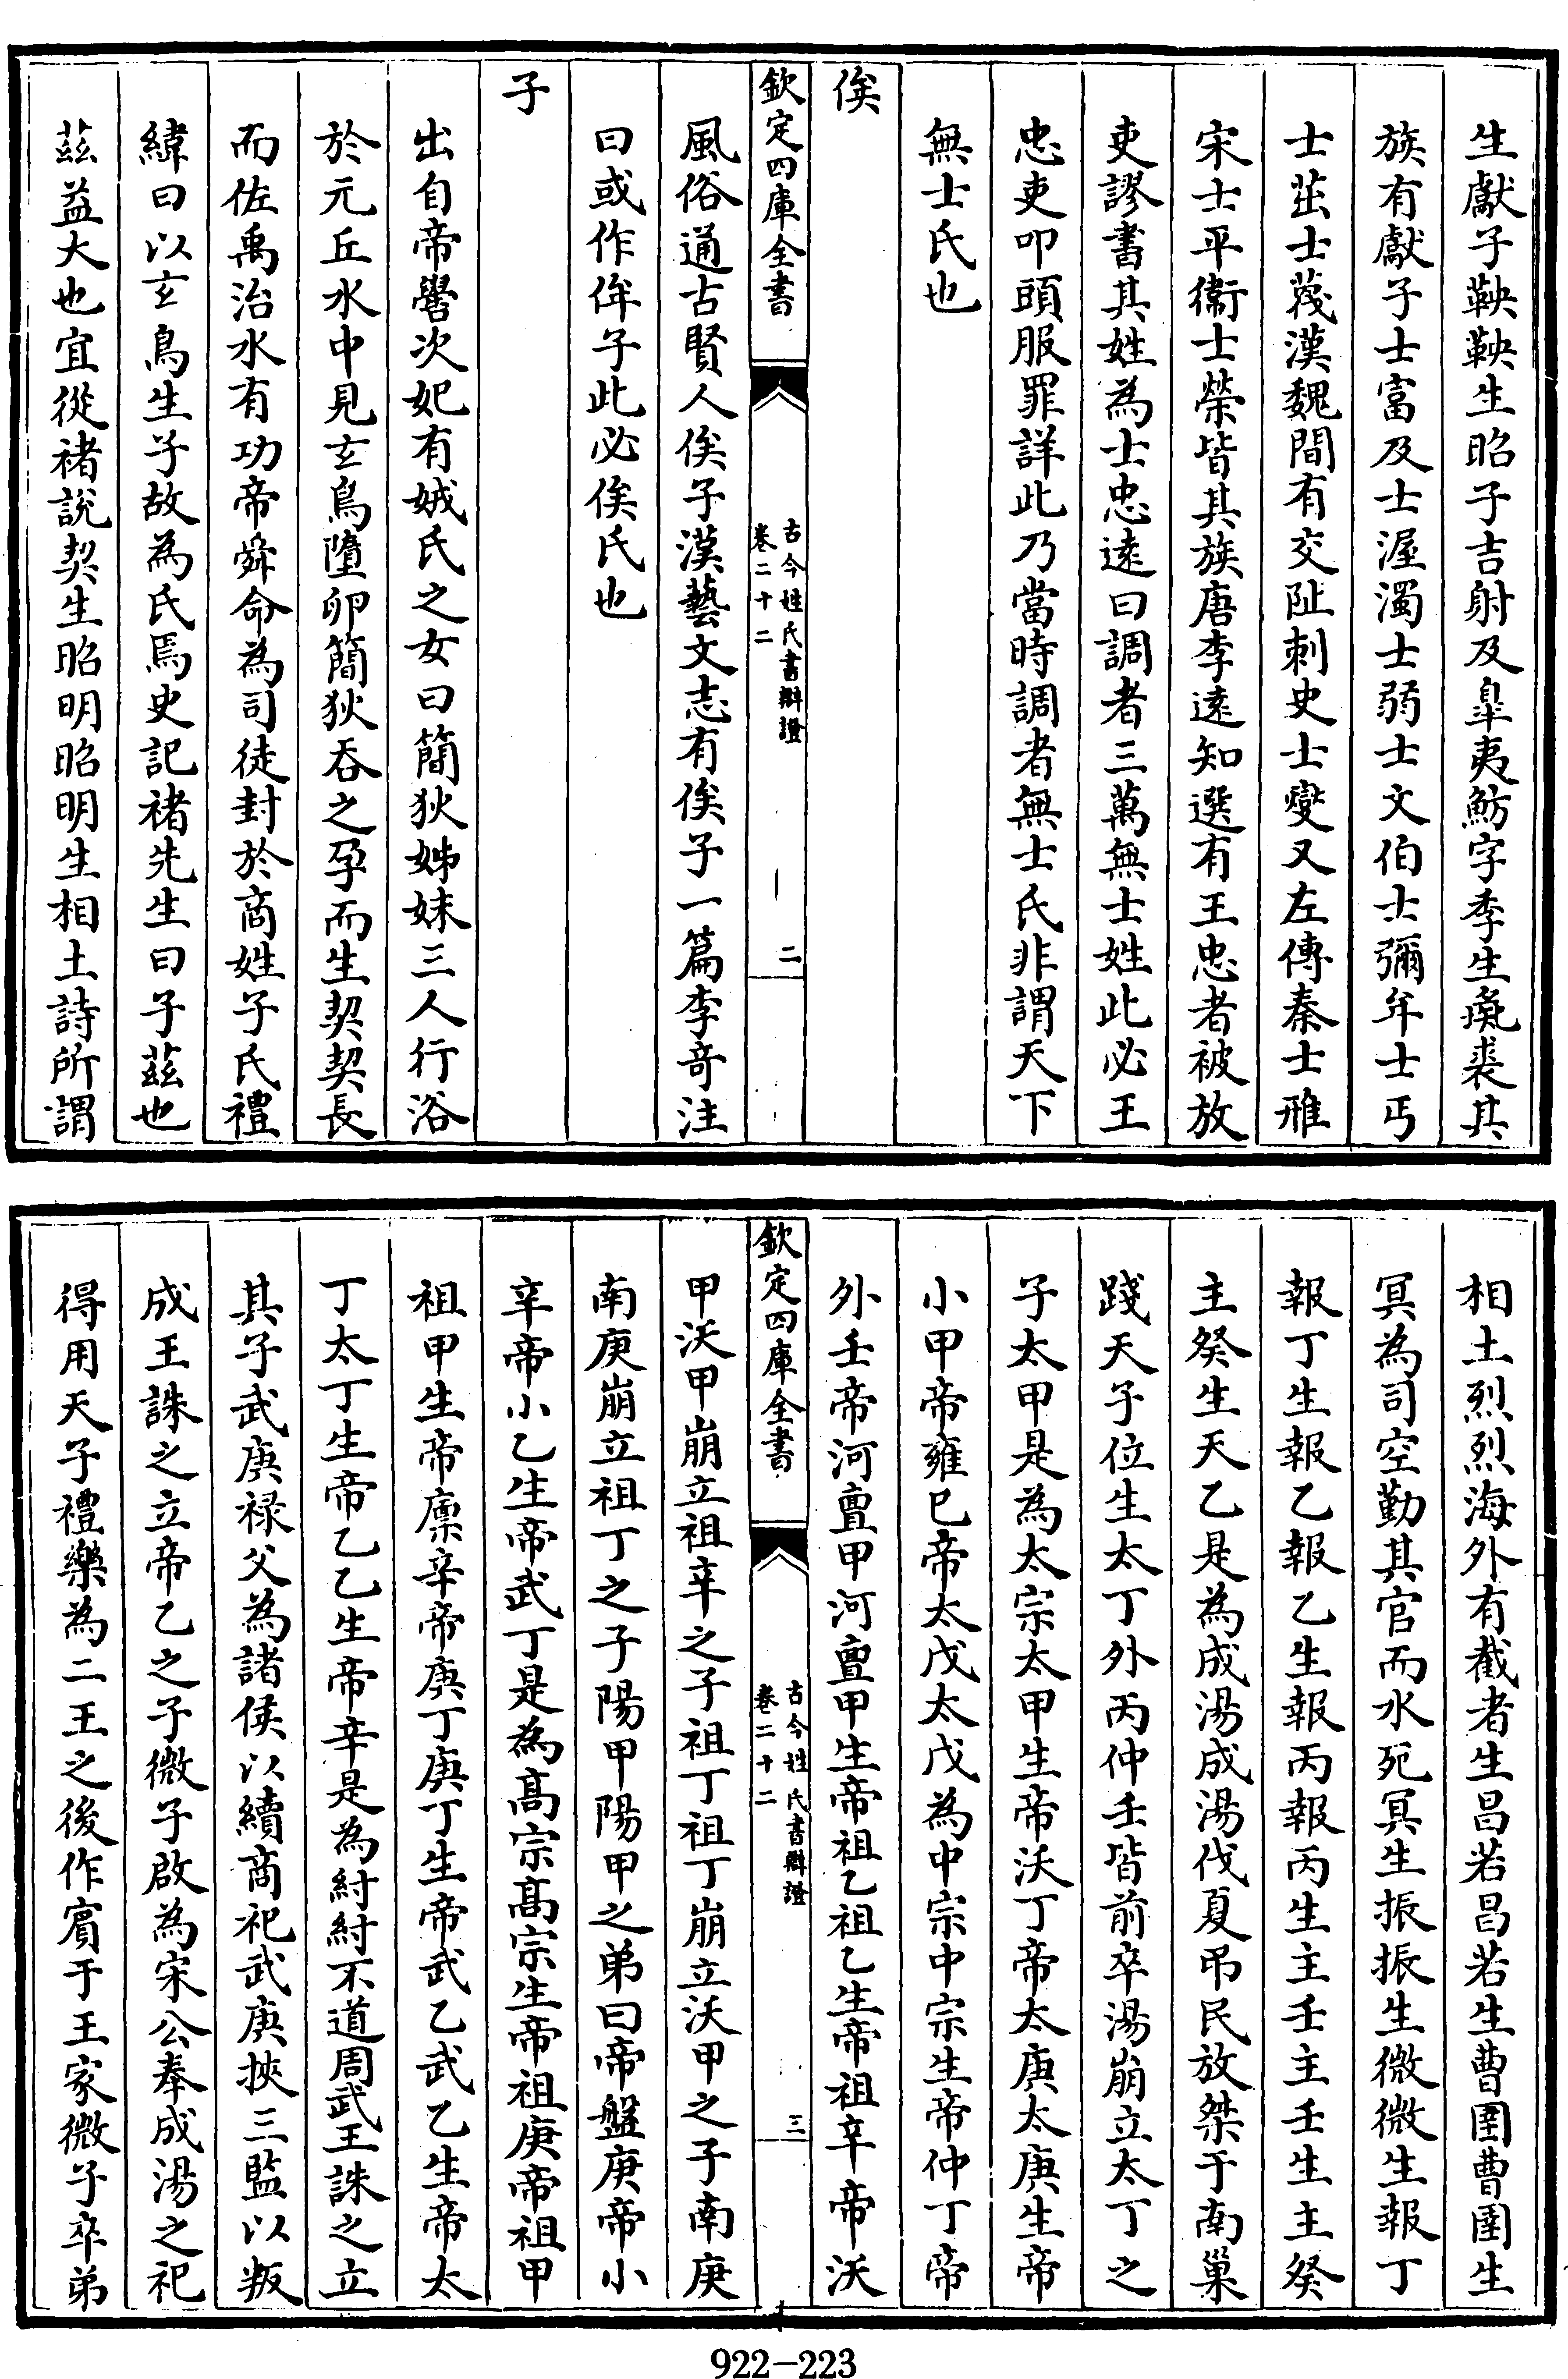 生獻子鞅鞅生昭子吉射及臯夷魴字季生㚟裘其
族有獻子士富及士渥濁士弱士文伯士彌牟士丐
士茁士蔑漢魏間有交阯刺史士燮又左傳秦士雅
宋士平衛士榮皆其族唐李遠知選有王忠者被放
吏謬書其姓為士忠遠曰調者三萬無士姓此必王
忠吏叩頭服罪詳此乃當時調者無士氏非謂天下
無士氏也
俟
欽定四庫全書
古今姓氏書辯證
卷二十二
二
風俗通古賢人俟子漢藝文志有俟子一篇李奇注
曰或作侔子此必俟氏也
子
出自帝嚳次妃有娀氏之女曰簡狄姊妹三人行浴
於元丘水中見玄鳥墮卵簡狄吞之孕而生契契長
而佐禹治水有功帝舜命為司徒封於商姓子氏禮
緯曰以玄鳥生子故為氏焉史記褚先生曰子茲也
茲益大也宜從褚說契生昭明昭明生相土詩所謂
相土烈烈海外有截者生昌若昌若生曹圉曹圉生
冥為司空勤其官而水死冥生振振生微微生報丁
報丁生報乙報乙生報丙報丙生主壬主壬生主癸
主癸生天乙是為成湯成湯伐夏弔民放桀于南巢
踐天子位生太丁外丙仲壬皆前卒湯崩立太丁之
子太甲是為太宗太甲生帝沃丁帝太庚太庚生帝
小甲帝雍己帝太戊太戊為中宗中宗生帝仲丁帝
外壬帝河亶甲河亶甲生帝祖乙祖乙生帝祖辛帝沃
欽定四庫全書
古今姓氏書辯證
卷二十二
三
甲沃甲崩立祖辛之子祖丁祖丁崩立沃甲之子南庚
南庚崩立祖丁之子陽甲陽甲之弟曰帝盤庚帝小
辛帝小乙生帝武丁是為髙宗髙宗生帝祖庚帝祖甲
祖甲生帝廩辛帝庚丁庚丁生帝武乙武乙生帝太
丁太丁生帝乙乙生帝辛是為紂紂不道周武王誅之立
其子武庚祿父為諸侯以續商祀武庚挾三監以叛
成王誅之立帝乙之子微子啟為宋公奉成湯之祀
得用天子禮樂為二王之後作賓于王家微子卒弟
922-223